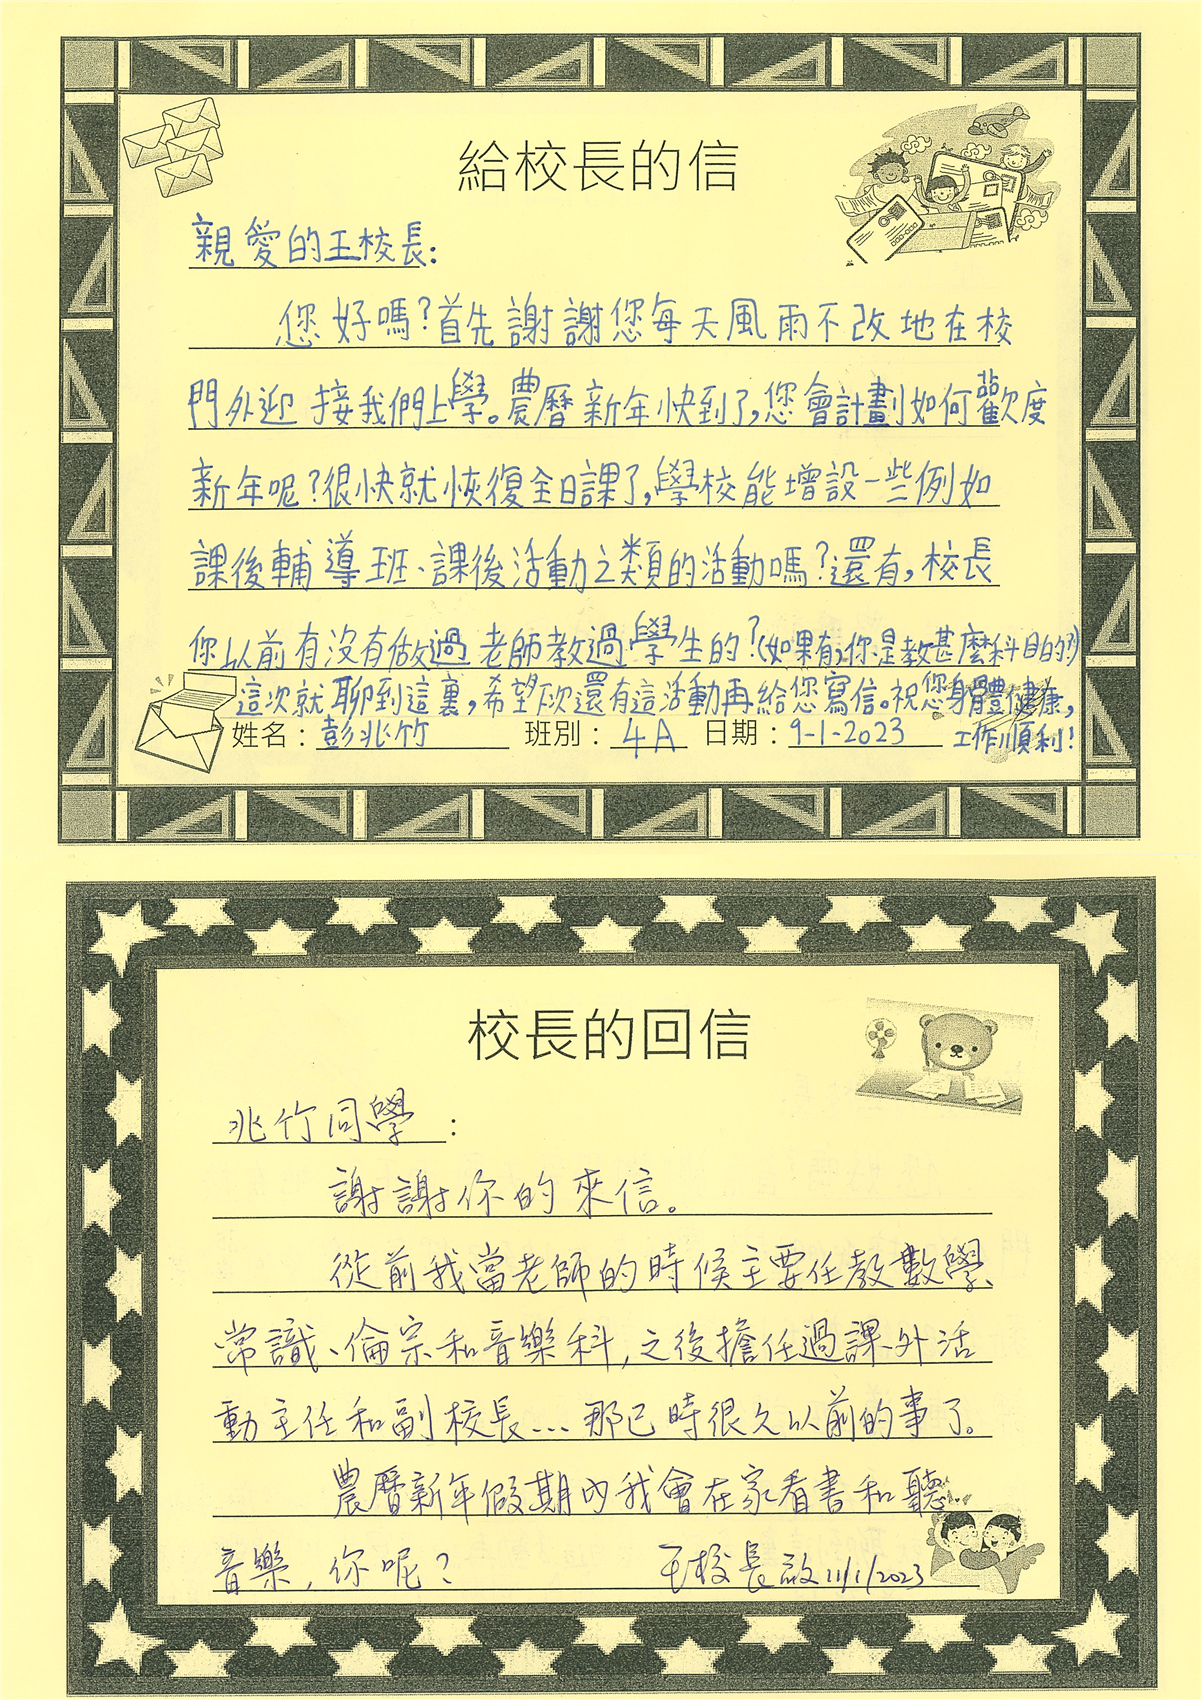 給校長的信
親愛的王校長:
您好嗎?首先謝謝您每天風雨不改地在校
門外迎接我們上學。農曆新年快到了,您會計劃如何歡度
新年呢?很快就恢復全日課了,學校能增設一些例如
課後輔導班、課後活動之類的活動嗎?還有,校長
你以前有沒有做過老師教過學生的?(如果有,你是教甚麼科目的?)
這次就聊到這裏,希望下次還有這活動再給您寫信。祝您身體健康,
工作順利!
姓名:彭兆竹 班別:4A 日期:9-1-2023
校長的回信
兆竹同學:
謝謝你的來信。
從前我當老師的時候主要任教數學、
常識、倫宗和音樂科,之後擔任過課外活
動主任和副校長...那已時很久以前的事了。
農曆新年假期內我會在家看書和聽
音樂,你呢?
王校長啟 11/1/2023